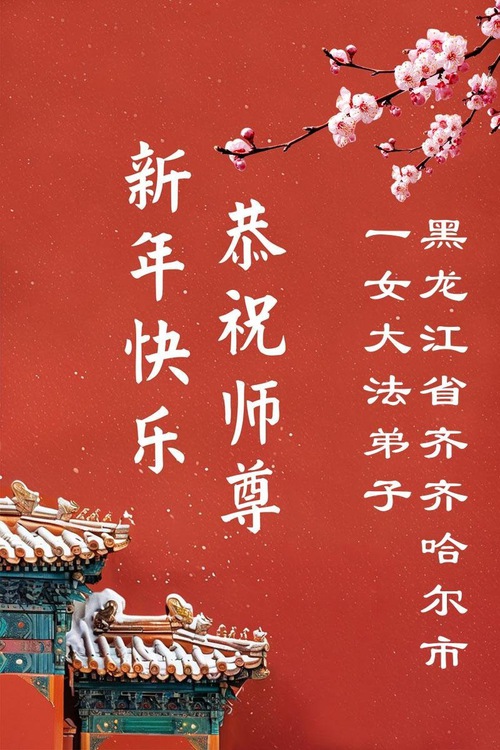 黑龙江省齐齐哈尔市
一女大法弟子
恭祝师尊
新年快乐